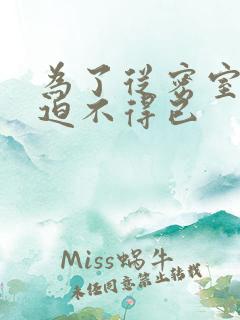 為了從密室
迫不得已
Miss蝸牛
未經同意禁止轉載